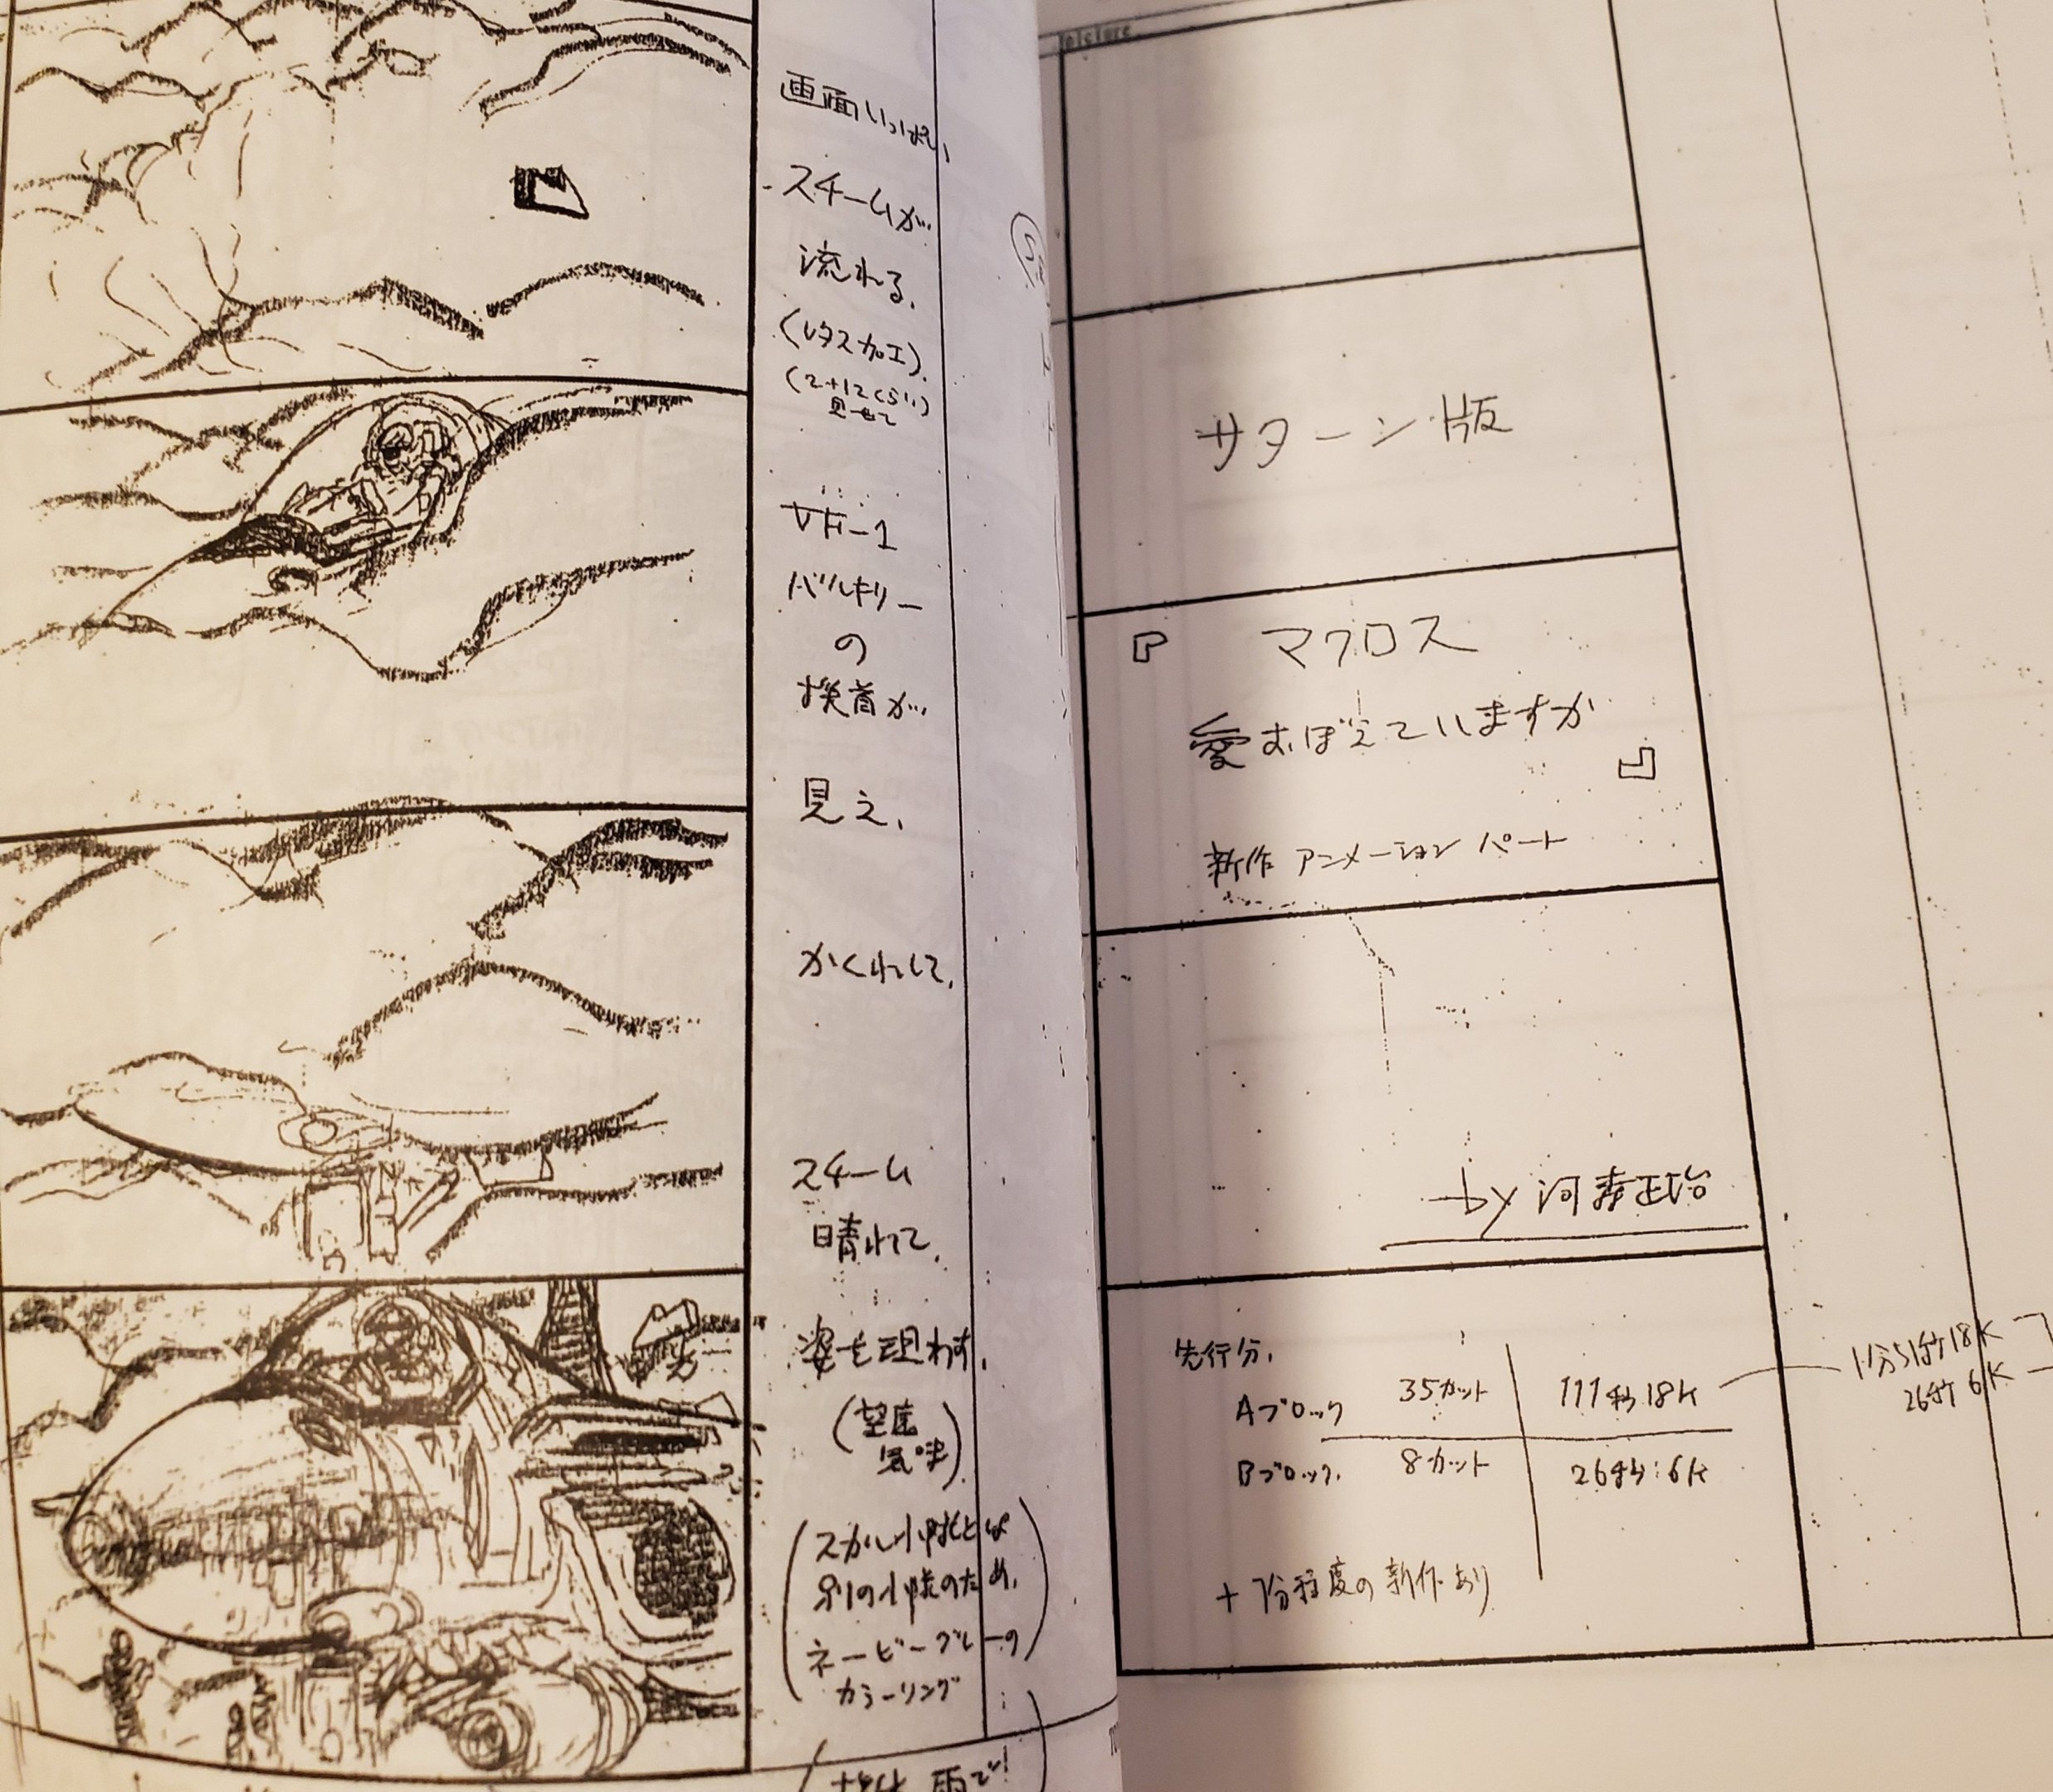 画面いっぱい
スチームが
流れる.
(レタス加工).
(2+12くらい)
見せて
VF-1
バルキリー
の
機首が
見え,
かくれして,
スチーム
晴れて,
姿を現わす.
(望遠
気味)
(スカル小隊とは
別の小隊のため,
ネービーブルーの
カラーリング)
picture
サターン版
『 マクロス
愛おぼえていますか
』
新作 アニメーション パート
by 河森正治
先行分.
Aブロック 35カット 111秒18K
1分51秒18K
Bブロック. 8カット 26秒:6K
26秒6K
+ 1分程度の新作あり